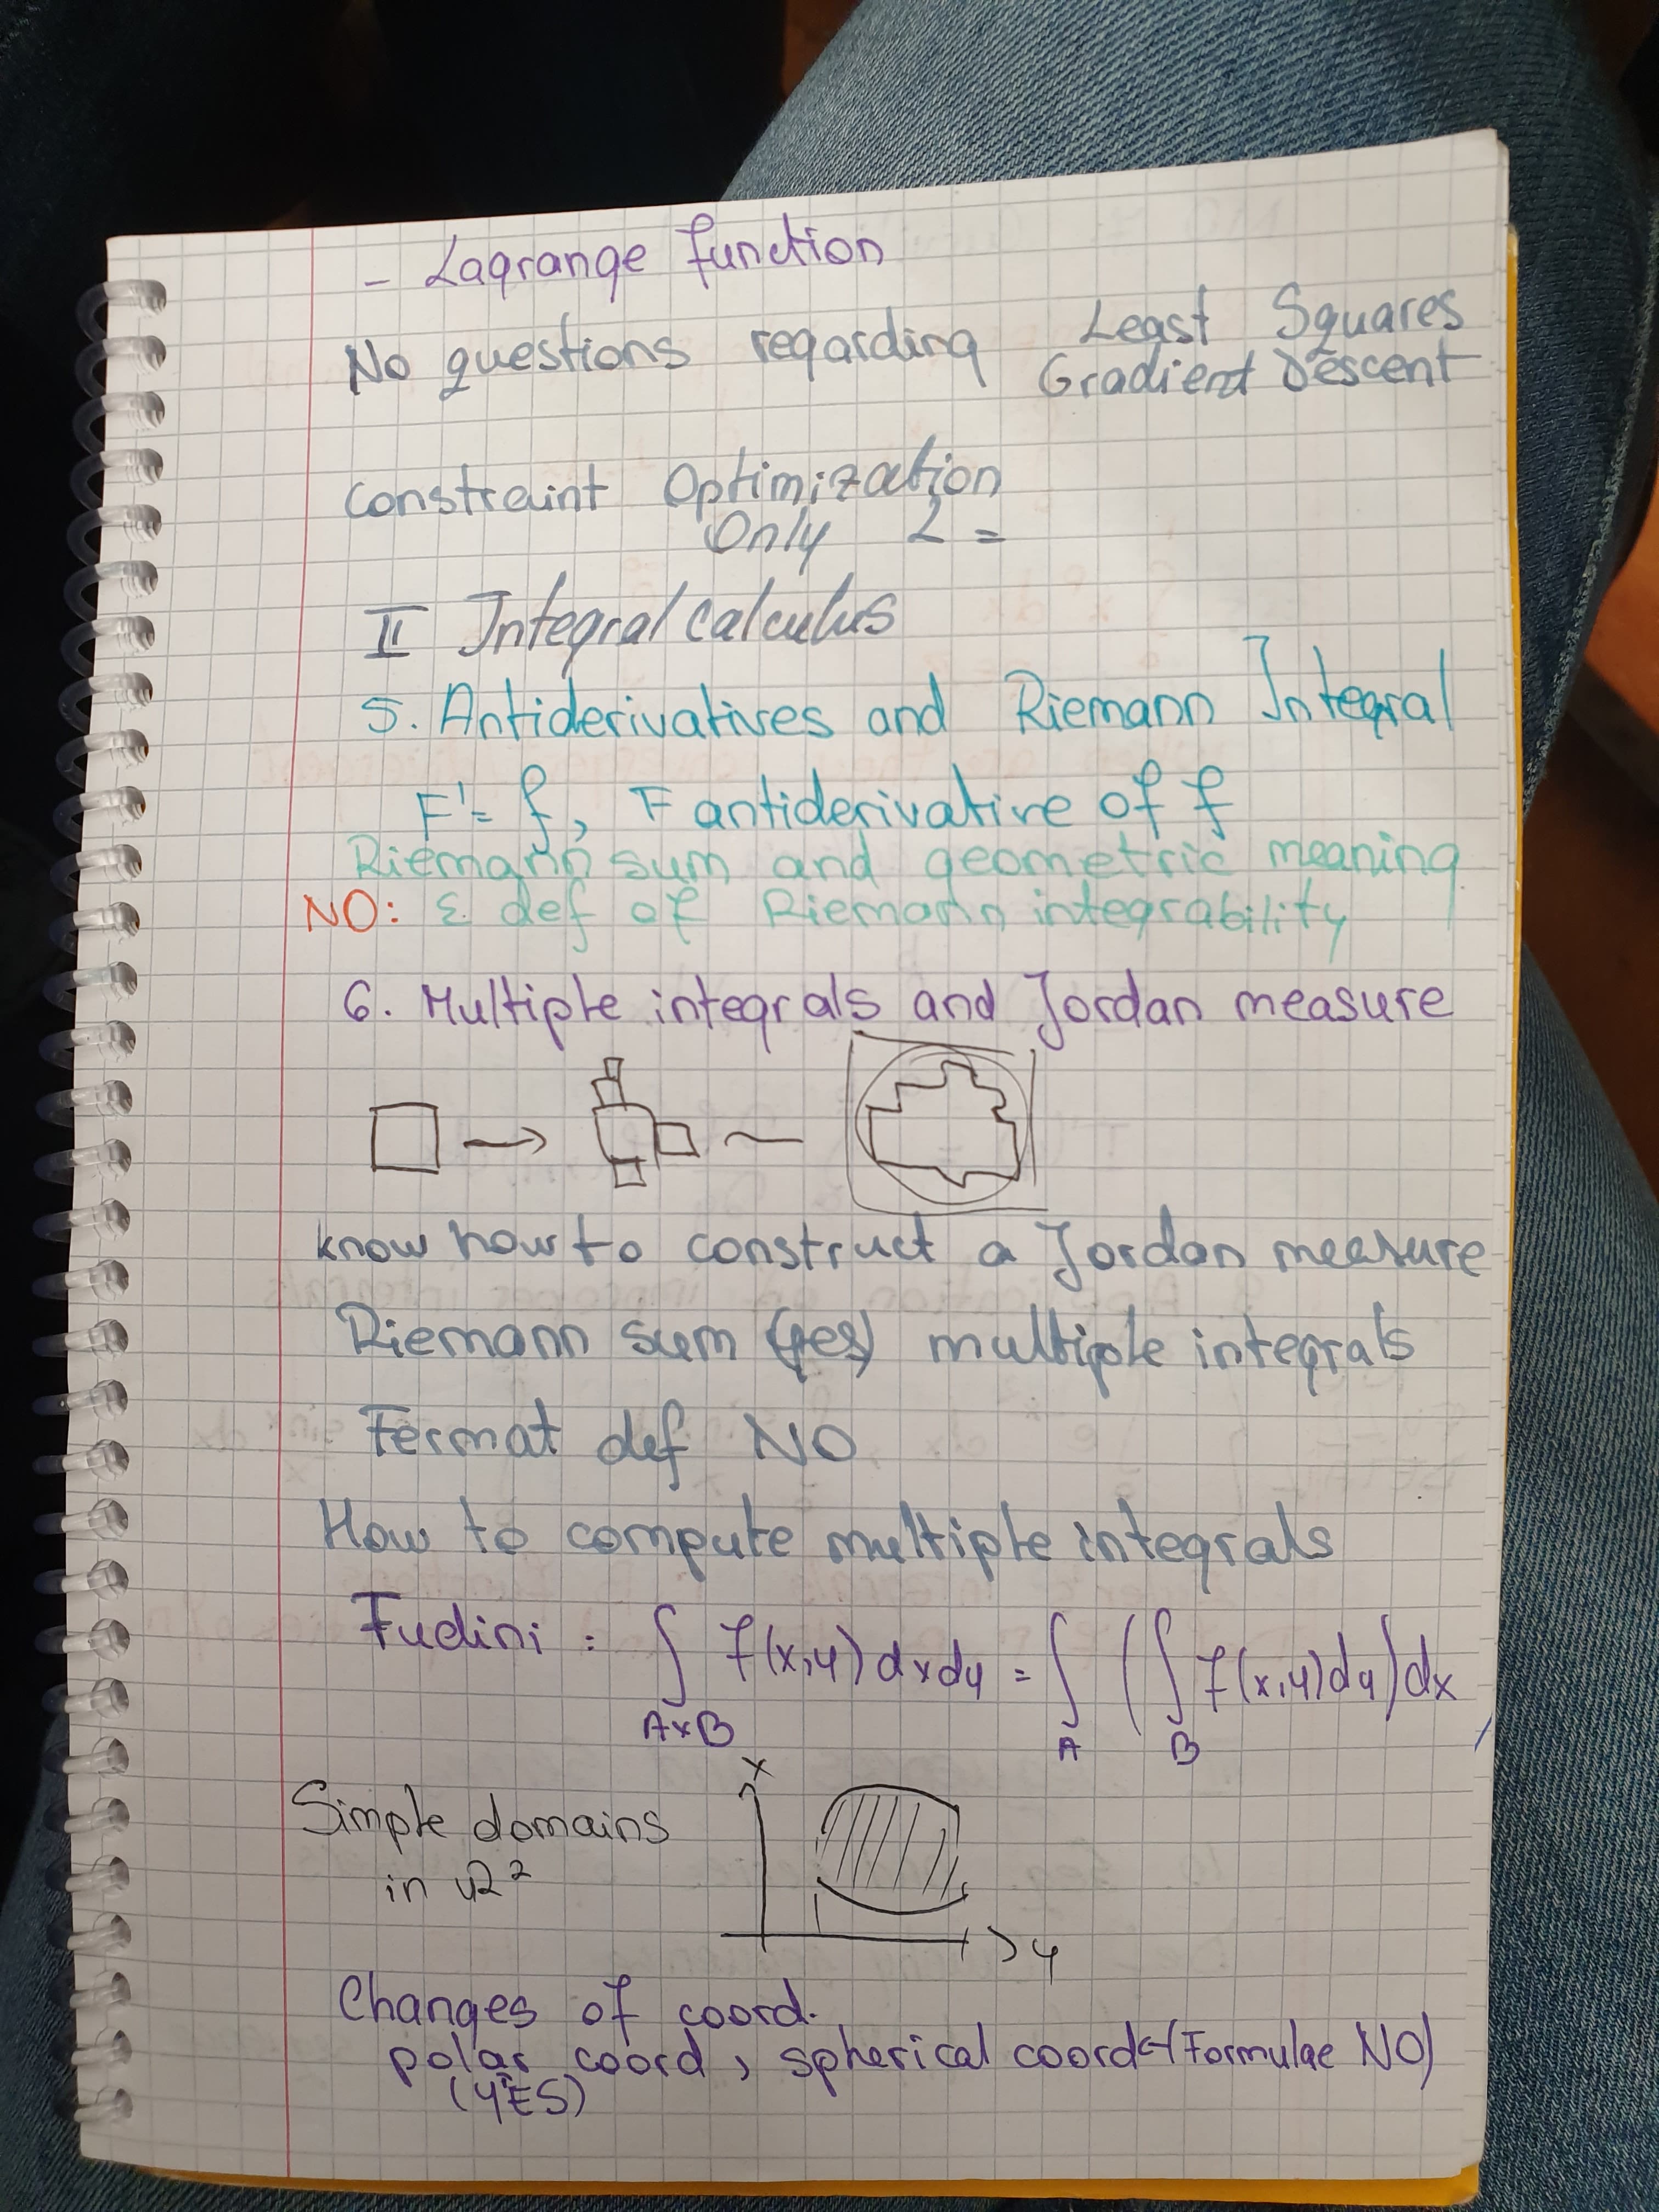 - Lagrange function
No questions regarding Least Squares
Gradient Descent
Constraint Optimization
Only L =
II Integral calculus
5. Antiderivatives and Riemann Integral
F' = f, F antiderivative of f
Riemann sum and geometric meaning
NO: ε def of Riemann integrability
6. Multiple integrals and Jordan measure
know how to construct a Jordan measure
Riemann sum (yes) multiple integrals
Fermat def NO
How to compute multiple integrals
Fudini : ∫_{A×B} f(x,y) dxdy = ∫_A (∫_B f(x,y)dy) dx
x
Simple domains
in ℝ²
y
Changes of coord.
polar coord, spherical coord (Formulae NO)
(YES)